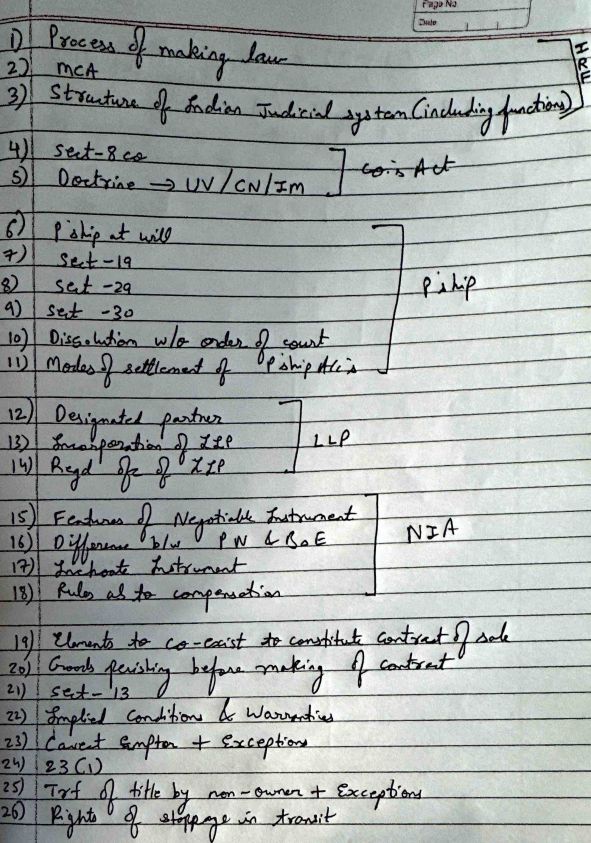 Page No
Date
1) Process of making law
2) MCA
3) Structure of Indian Judicial system (including functions)
IRF
4) sect-8 co
5) Doctrine → UV/CN/IM
Co.'s Act
6) P'ship at will
7) sect-19
8) sect-29
9) sect-30
10) Dissolution w/o order of court
11) Modes of settlement of P'ship A/c's
P'ship
12) Designated partner
13) Incorporation of LLP
14) Regd ofc of LLP
LLP
15) Features of Negotiable Instrument
16) Difference b/w PN & BoE
17) Inchoate Instrument
18) Rules as to compensation
NIA
19) Elements to co-exist to constitute contract of sale
20) Goods perishing before making of contract
21) sect-13
22) Implied Conditions & Warranties
23) Caveat Emptor + Exceptions
24) 23(1)
25) Trf of title by non-owner + Exceptions
26) Rights of stoppage in transit